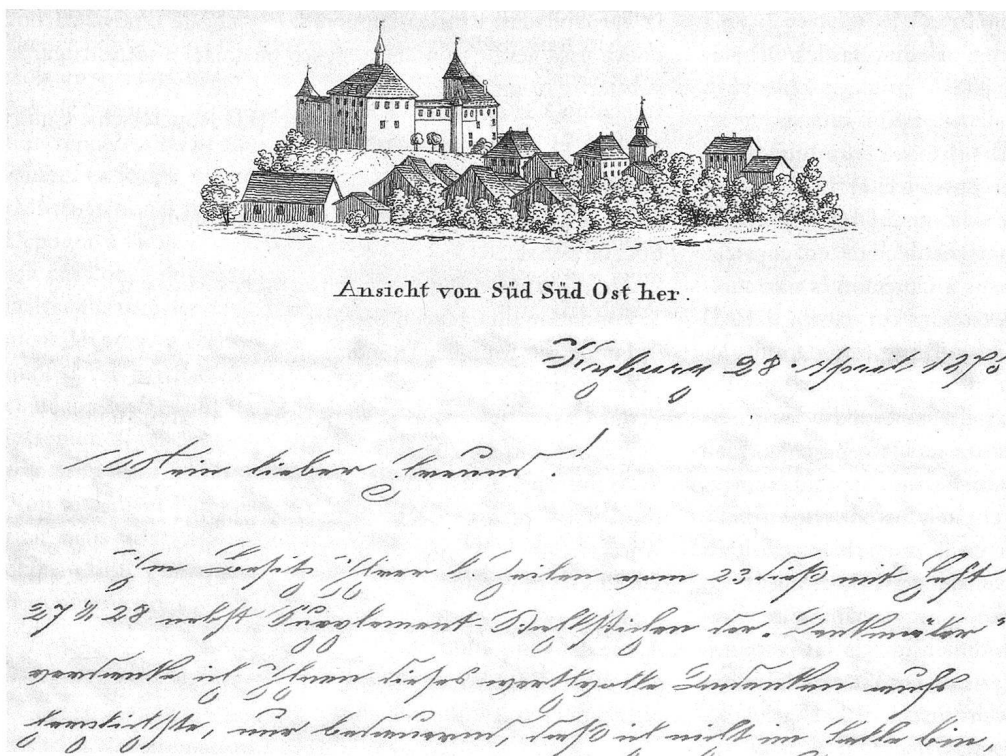 Ansicht von Süd Süd Ost her.
Kyburg 28. April 1873
Mein lieber Freund!
Im Besitz Ihrer l. Zeilen vom 23 dieß mit Heft
27 & 28 nebst Supplement-Stahlstichen der „Denkmäler“
verdanke ich Ihnen dieses werthvolle Andenken aufs
herzlichste, nur bedauernd, daß ich nicht im Falle bin,